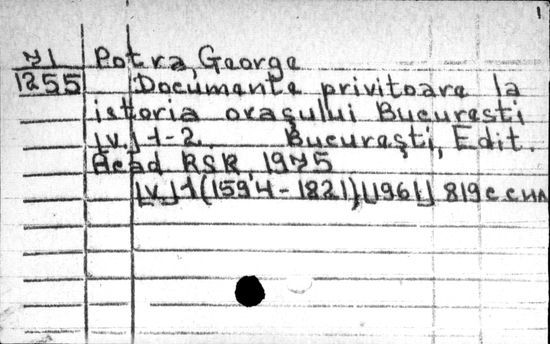 1
71 Potra, George
1255 Documente privitoare la
istoria orașului București
[v.] 1-2. București, Edit.
Acad RSR, 1975
[v.] 1 (1594-1821), [1961] 819 c